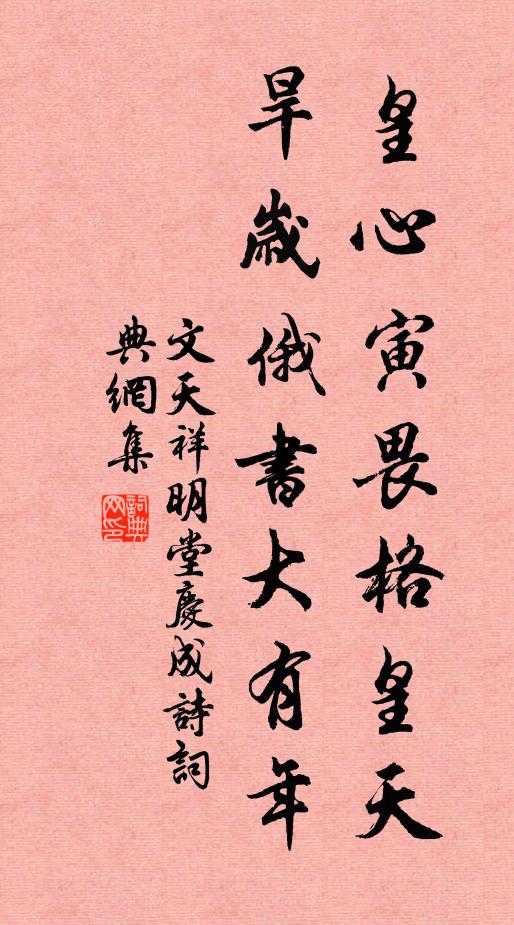 皇心寅畏格皇天
旱歲俄書大有年
文天祥明堂慶成詩詞
典網集
詞典网印